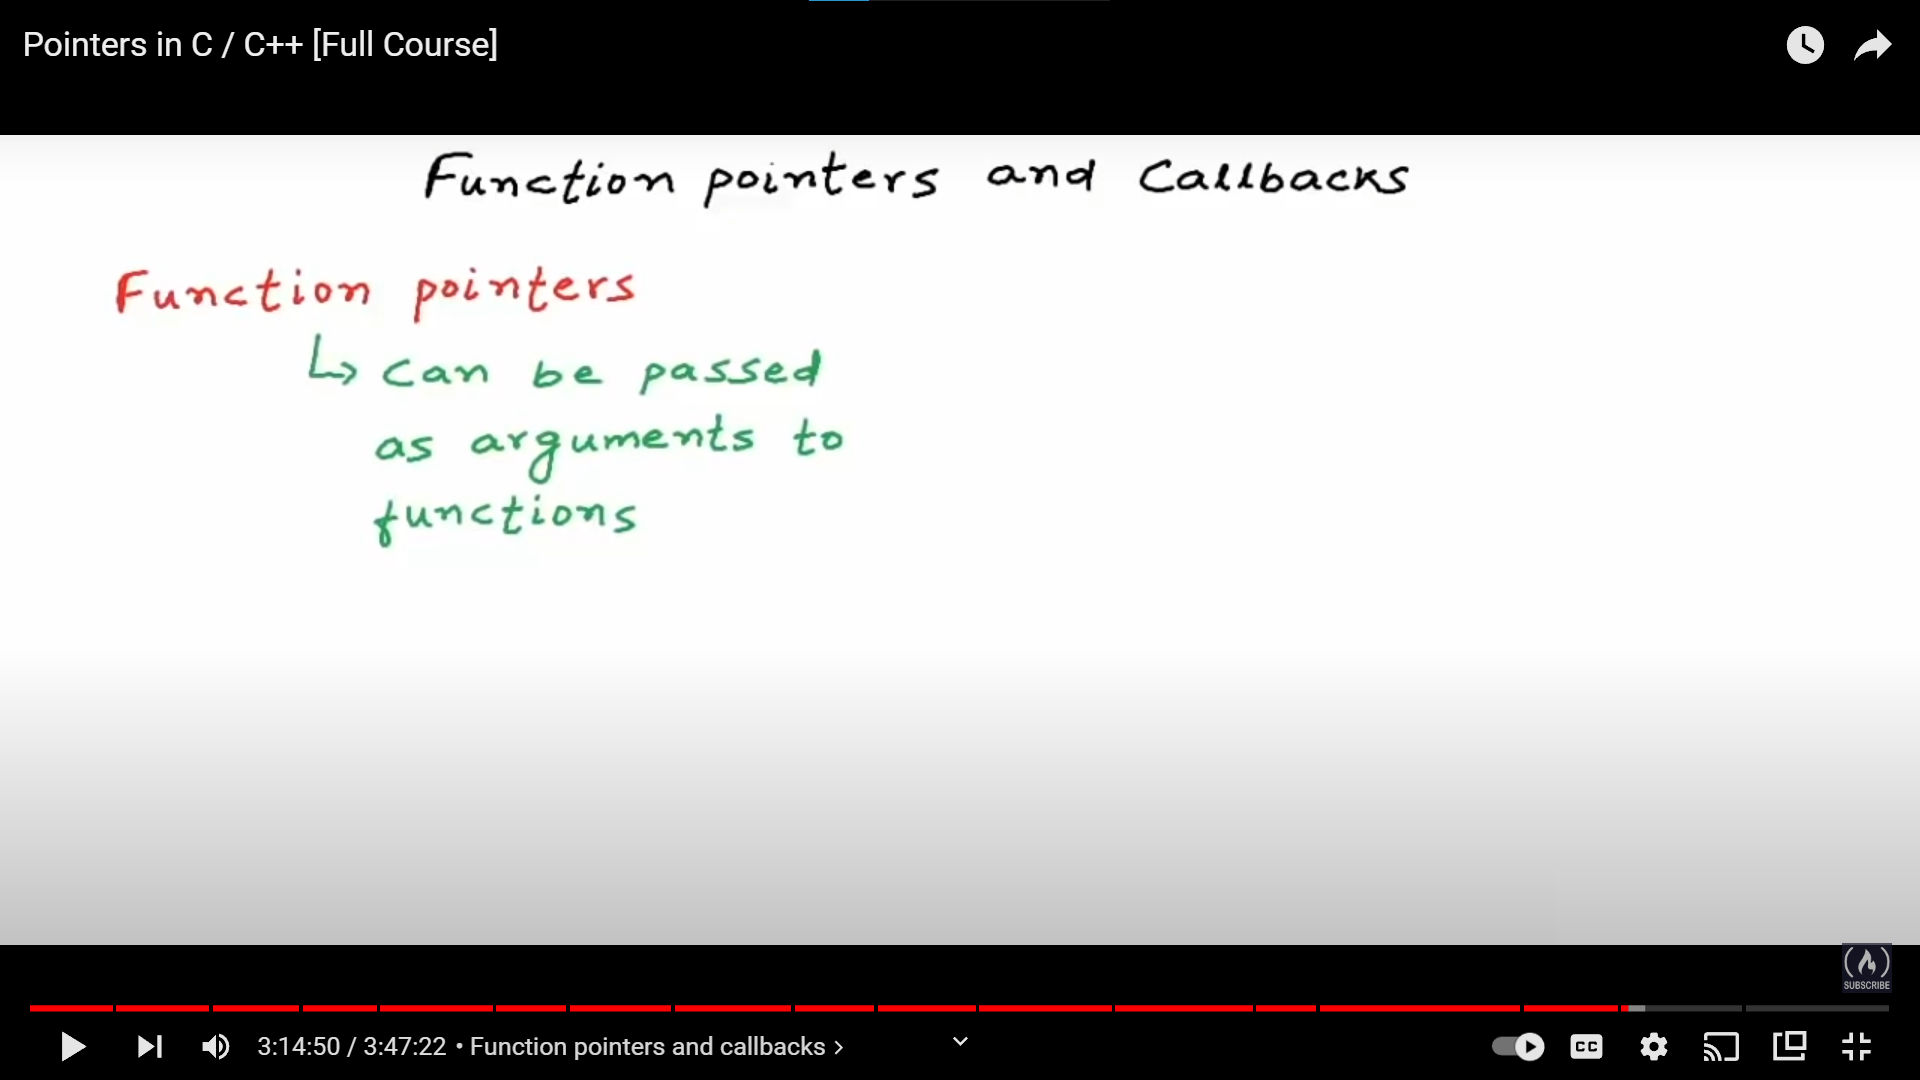 Pointers in C / C++ [Full Course]
Function pointers and Callbacks
Function pointers
↳ can be passed
as arguments to
functions
SUBSCRIBE
3:14:50 / 3:47:22 • Function pointers and callbacks >
CC